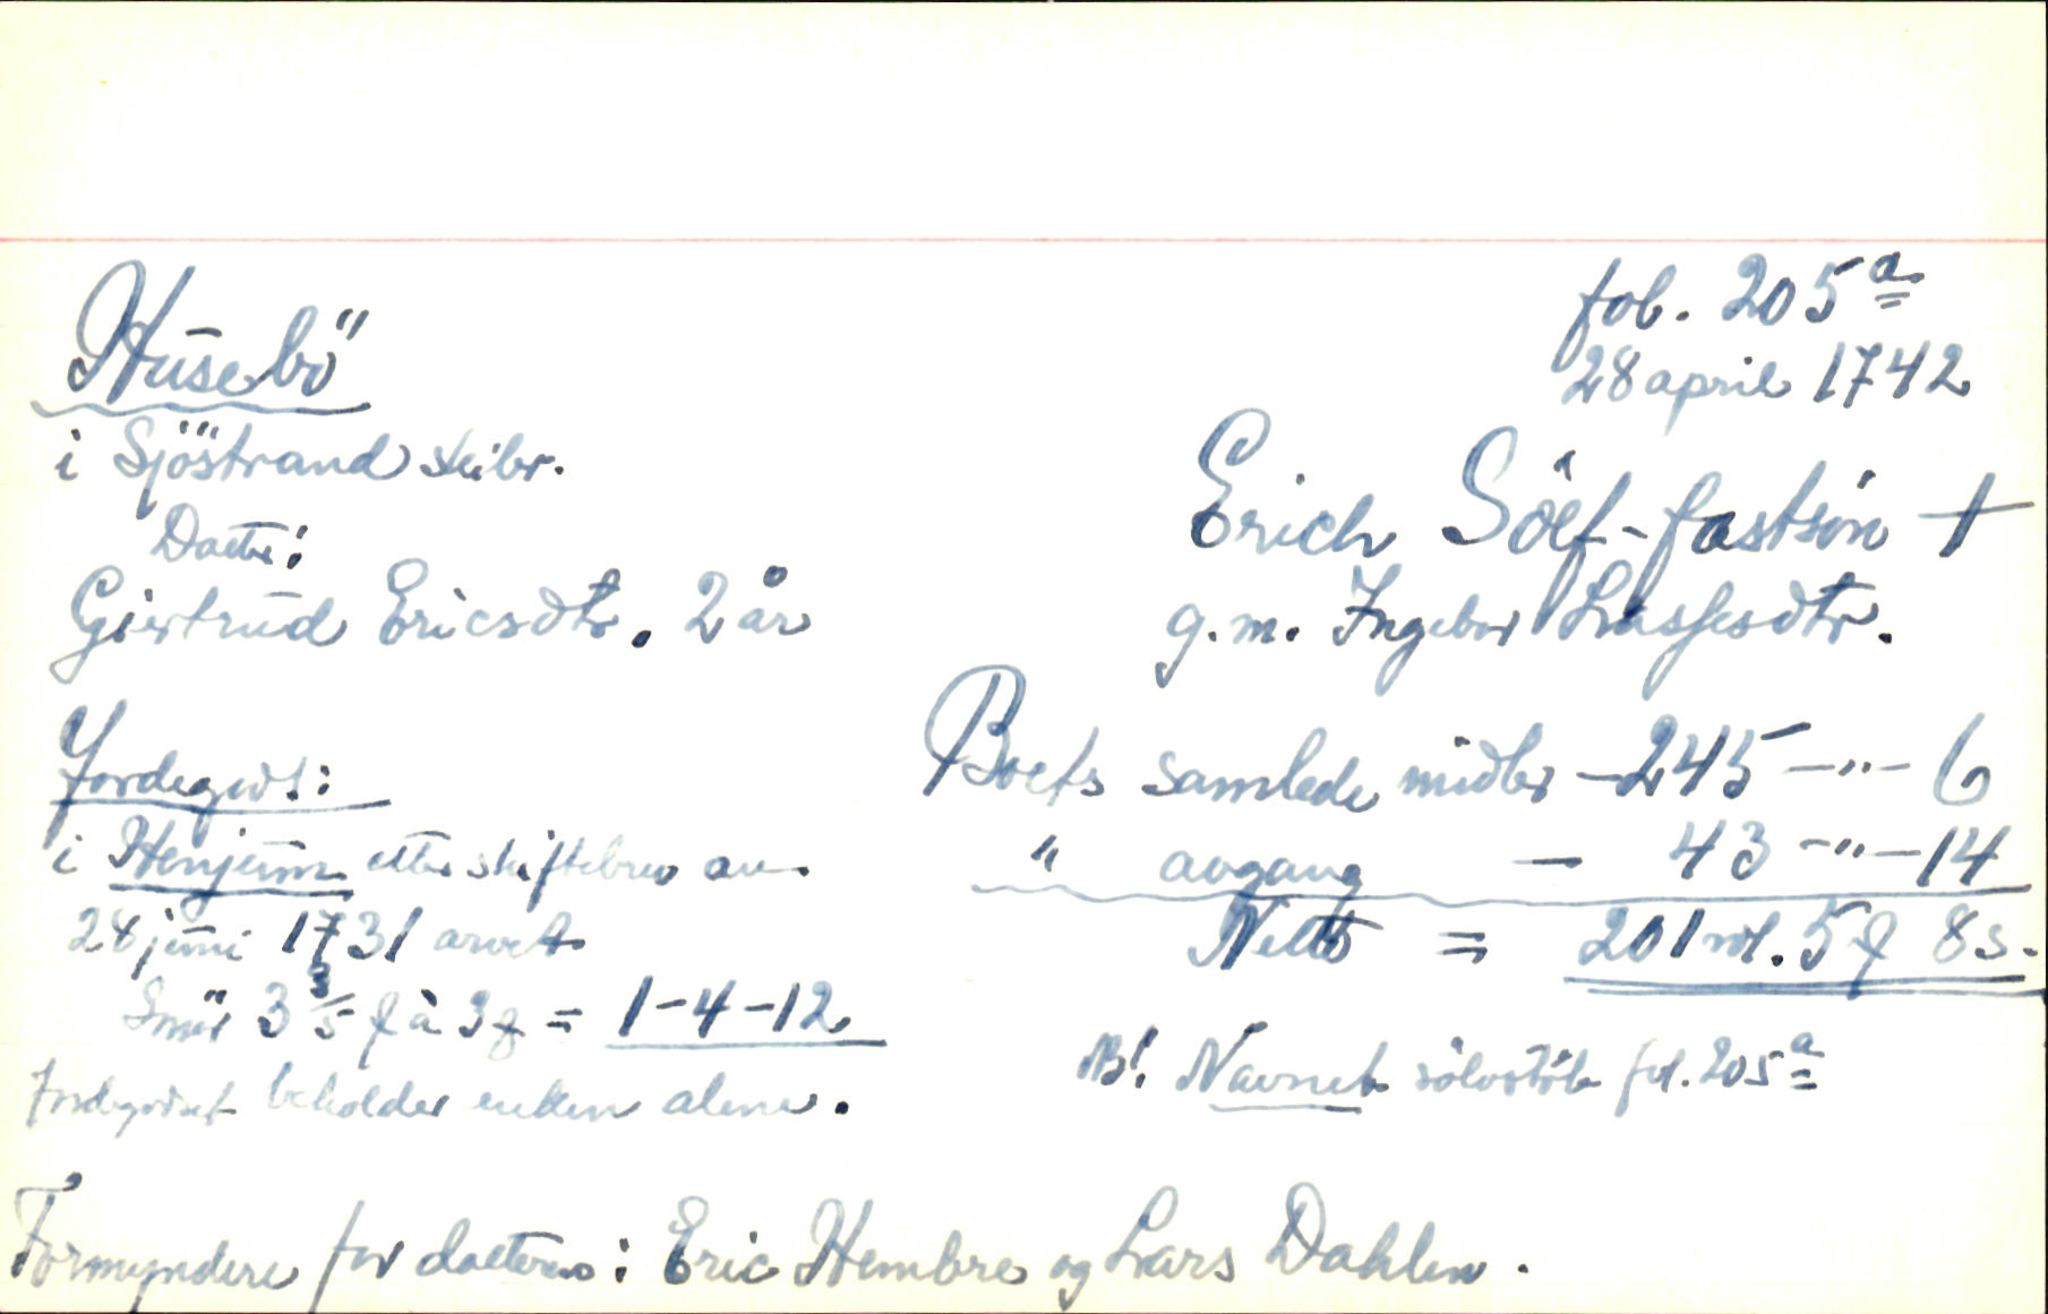 fol. 205a
28 april 1742
Husebö
i Sjöstrand skibr.
Erich Sölf-fastsön +
Datter:
Giertrud Ericsdtr. 2 år
g.m. Ingebor Lassesdtr.
Jordegods:
Boets samlede midler - 245 - " - 6
i Henjum etter skiftebrev av
" avgang - 43 - " - 14
28 juni 1731 arvet
Netto = 201 rdl. 5 f 8 s.
Smör 3 3/5 f à 3 f = 1-4-12
NB! Navnet sölvstöb fol. 205a
Jordegodset beholder enken alene.
Formyndere for datteren: Eric Hembre og Lars Dahlen.